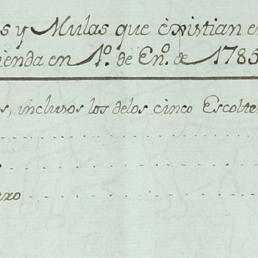 s y Mulas que existian e
ienda en 1º. de Enº. de 1785
s, inclusos los delos cinco Escolte
exo